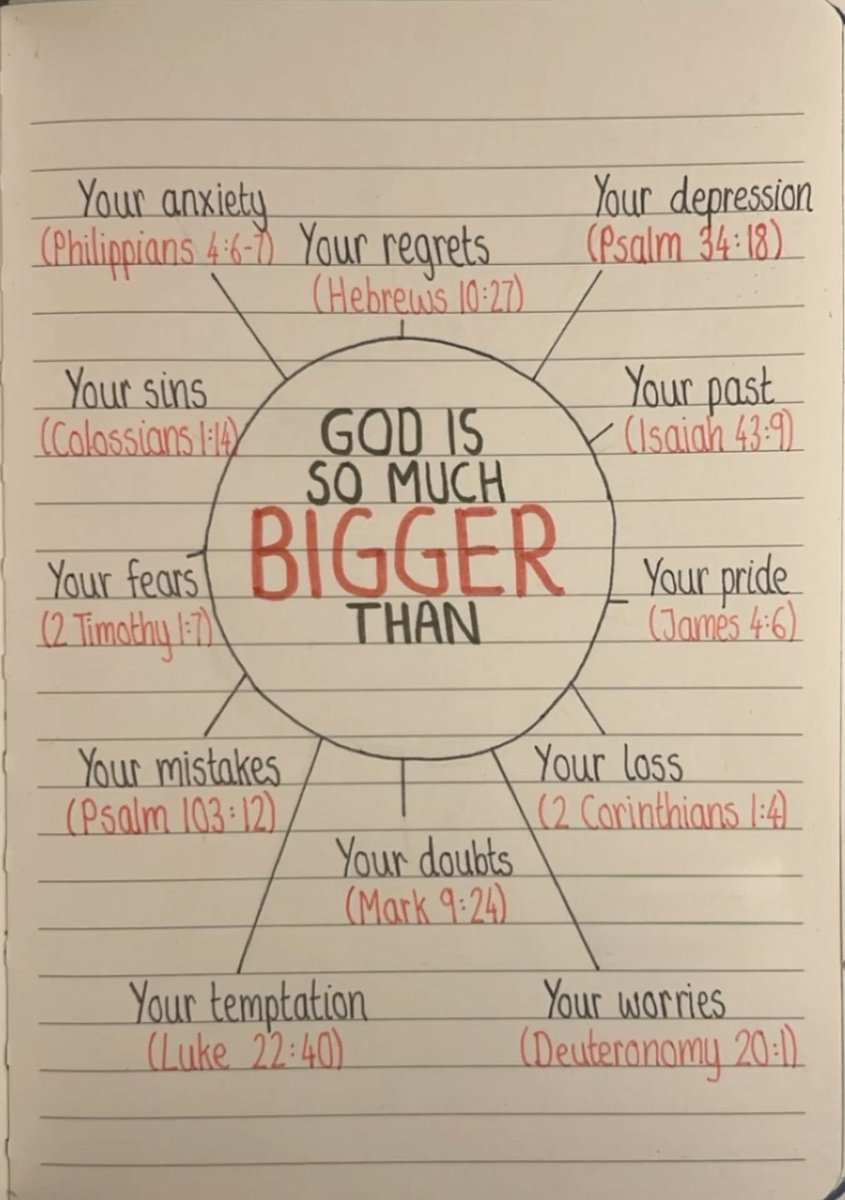 Your anxiety
(Philippians 4:6-7)
Your regrets
(Hebrews 10:27)
Your depression
(Psalm 34:18)
Your sins
(Colossians 1:14)
Your past
(Isaiah 43:9)
GOD IS
SO MUCH
BIGGER
THAN
Your fears
(2 Timothy 1:7)
Your pride
(James 4:6)
Your mistakes
(Psalm 103:12)
Your loss
(2 Corinthians 1:4)
Your doubts
(Mark 9:24)
Your temptation
(Luke 22:40)
Your worries
(Deuteronomy 20:1)